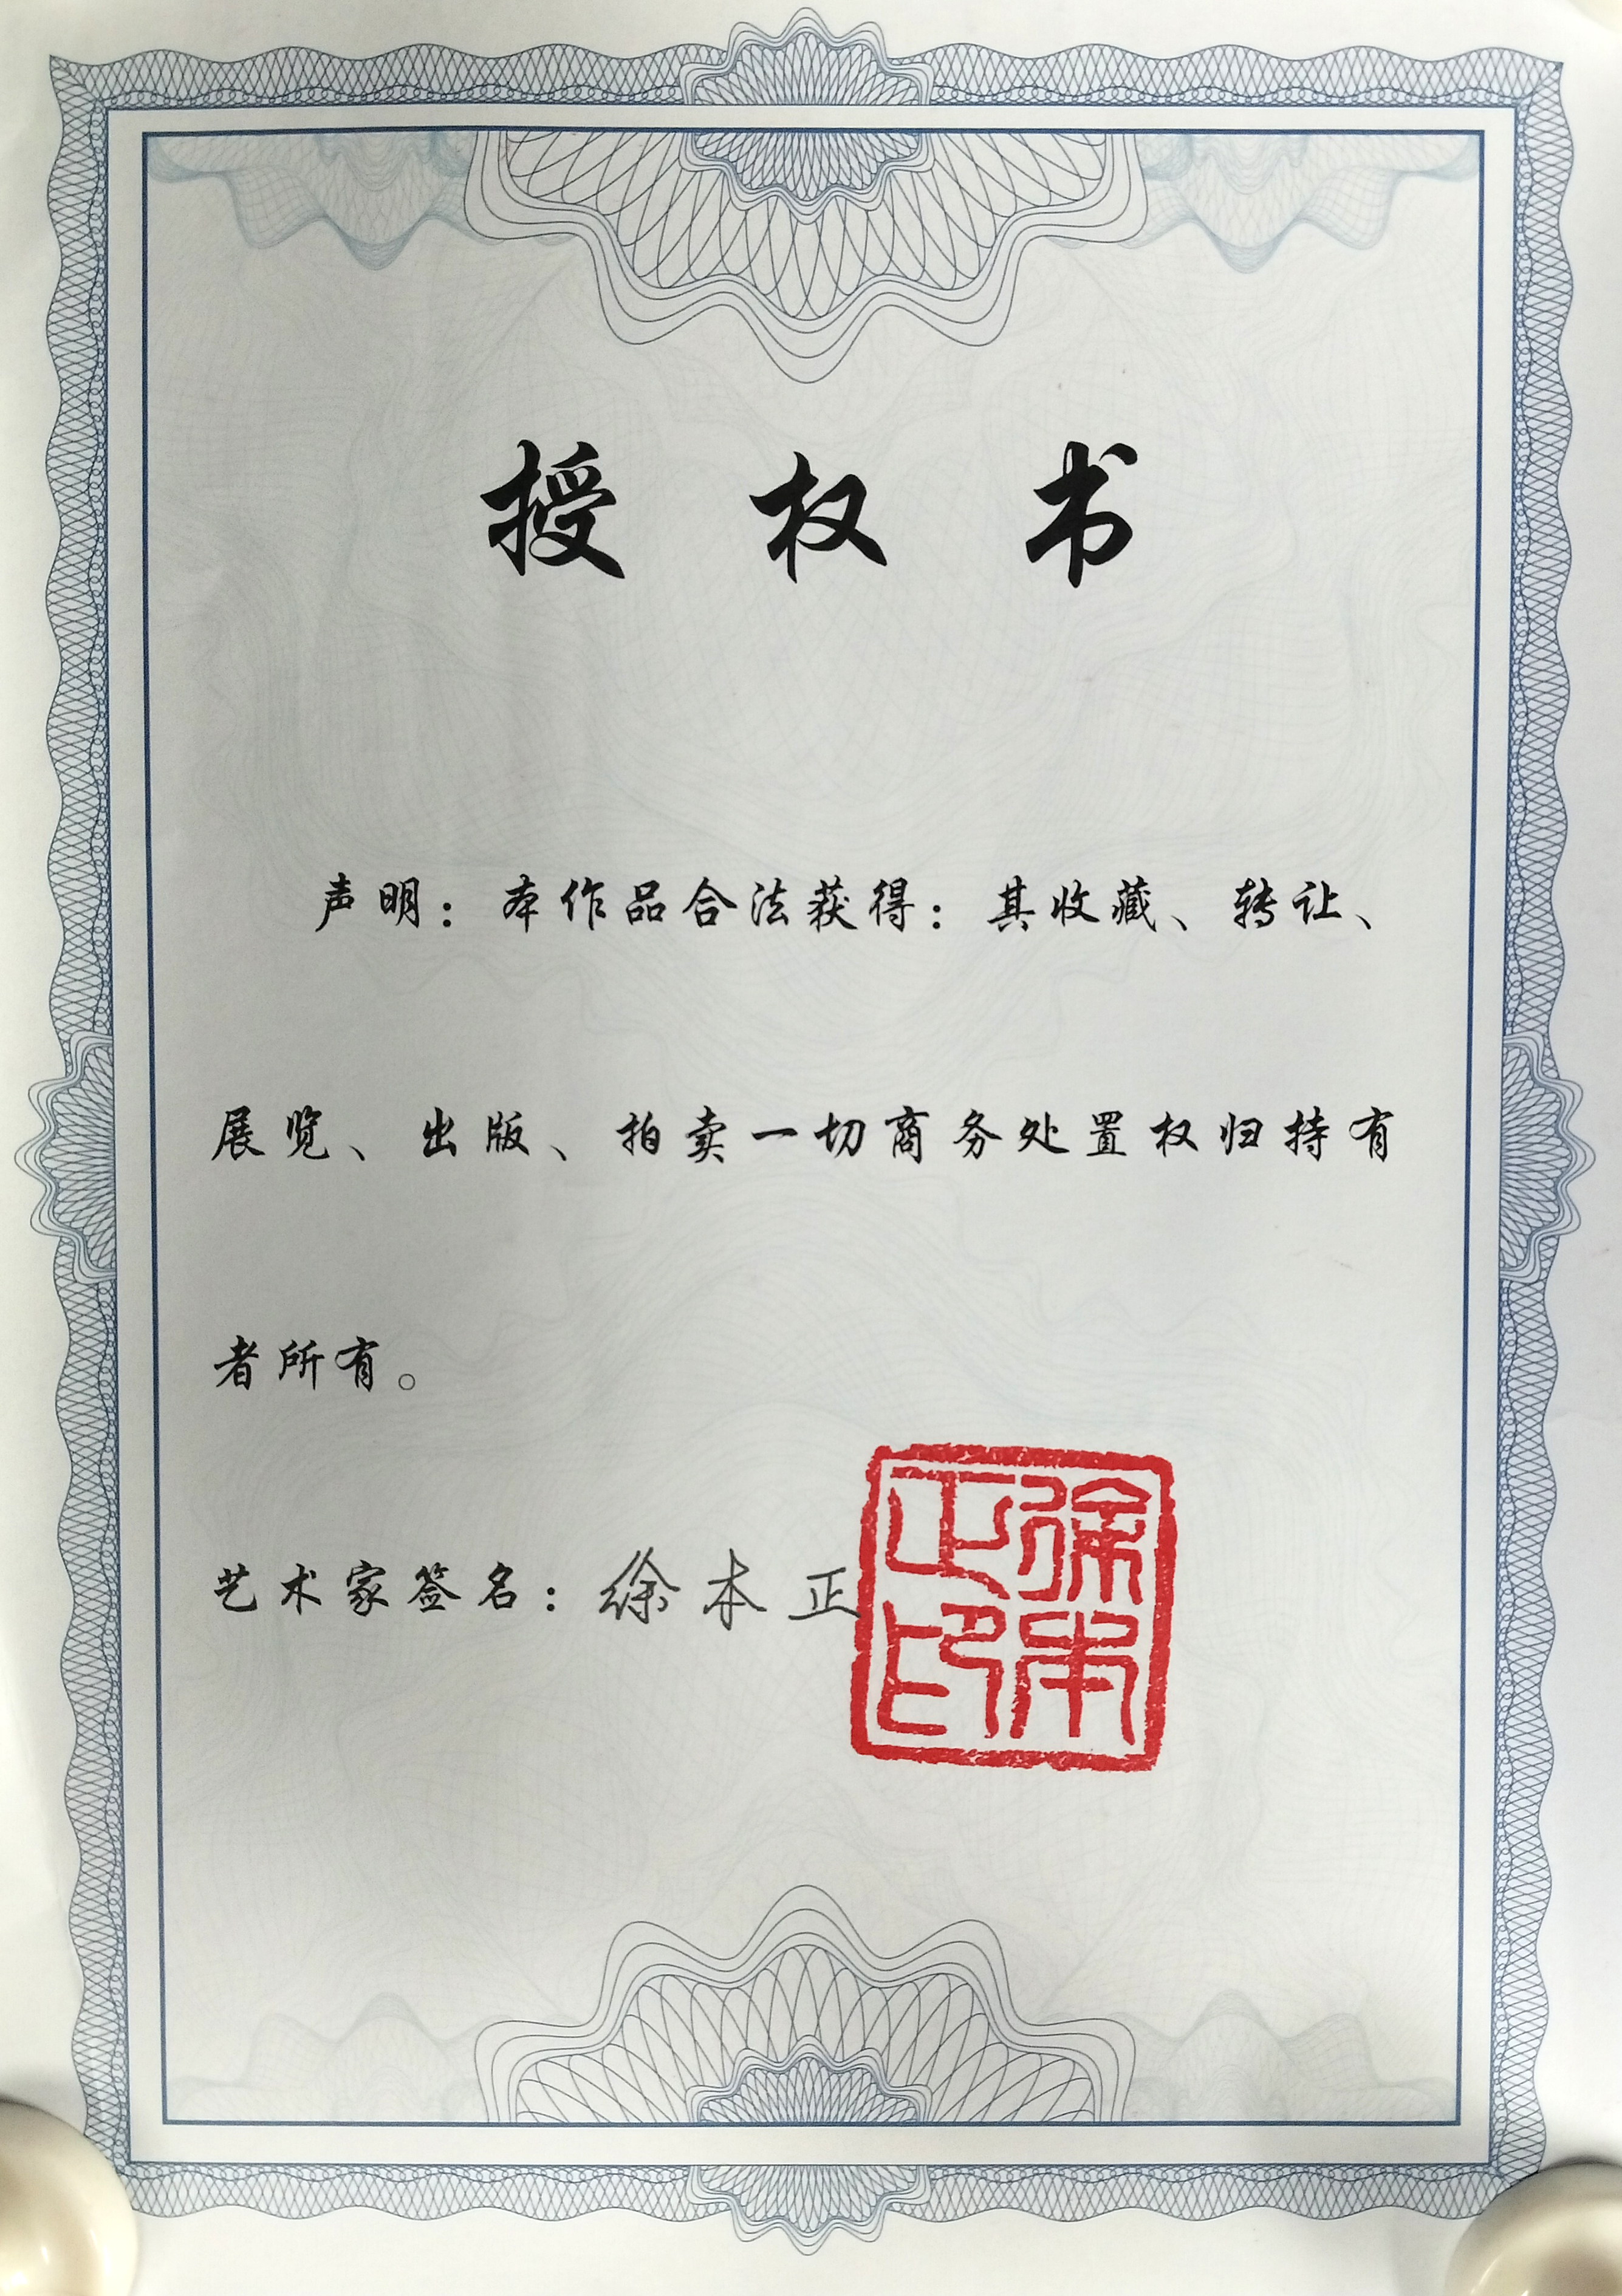 授权书
声明：本作品合法获得：其收藏、转让、
展览、出版、拍卖一切商务处置权归持有
者所有。
艺术家签名：徐本正
徐本
正印